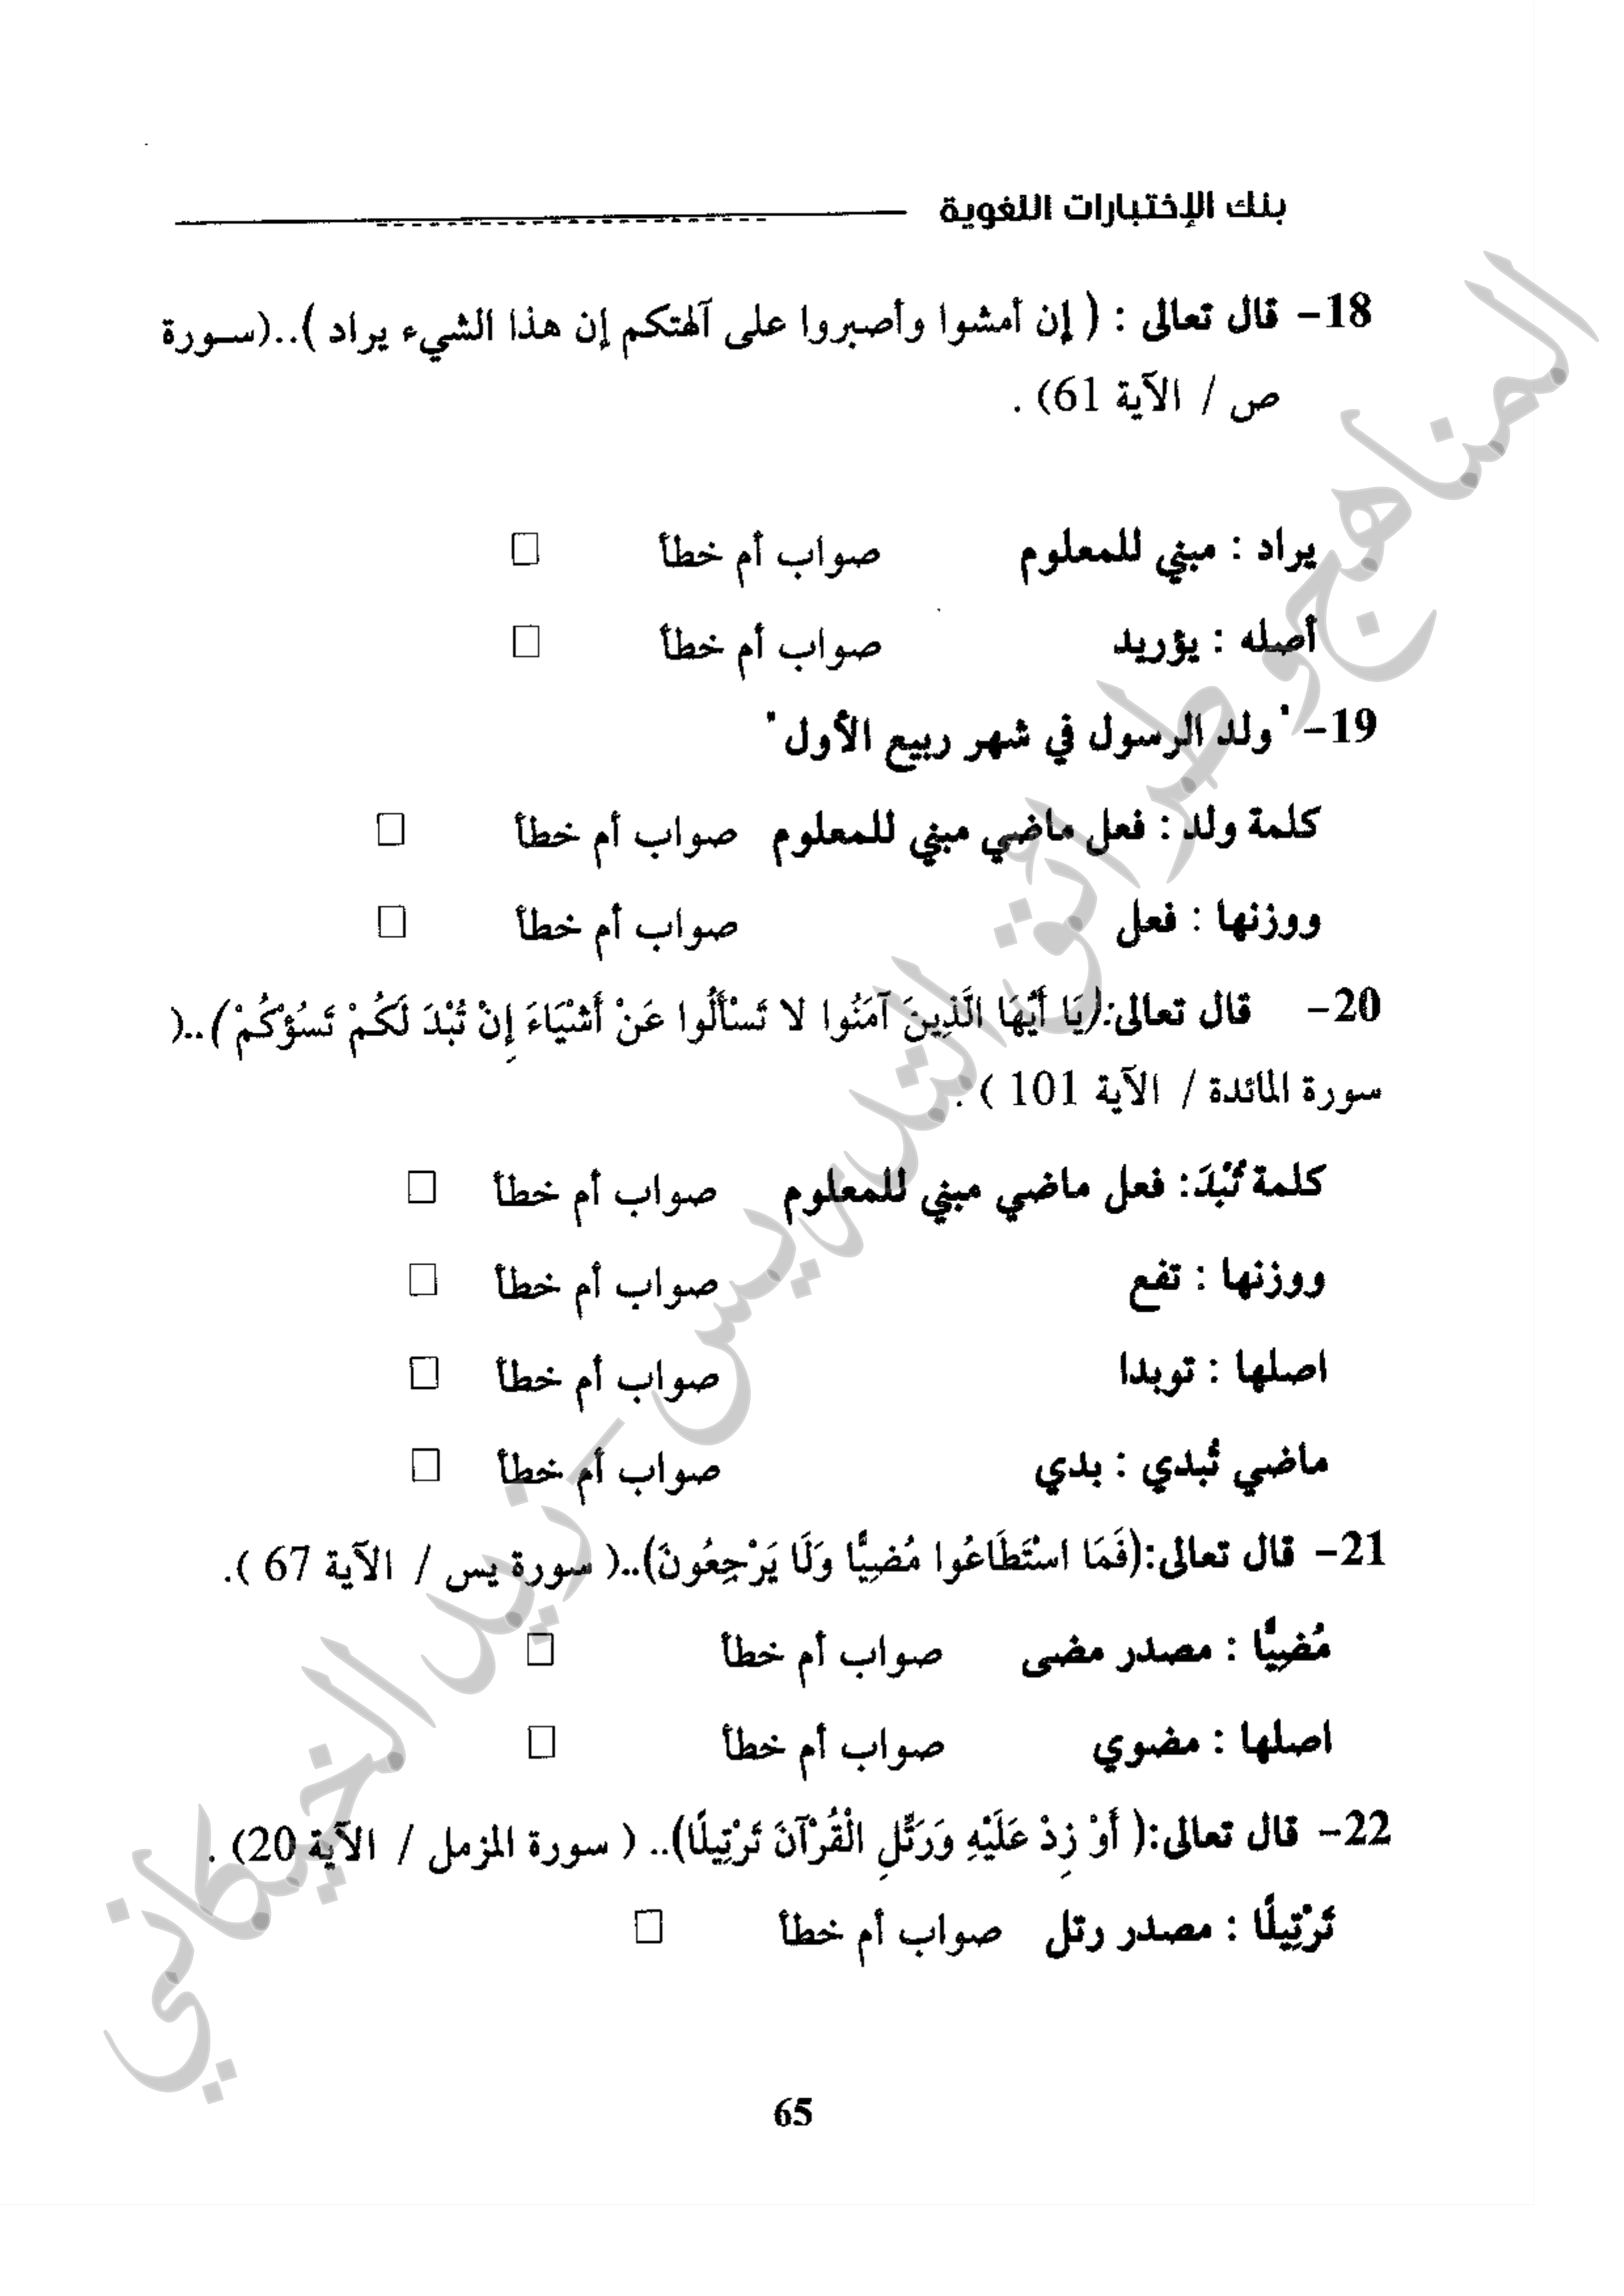 بنك الإختبارات اللغوية
18- قال تعالى : ( إن أمشوا وأصبروا على آلهتكم إن هذا الشيء يراد )..(سورة
ص / الآية 61) .
يراد : مبني للمعلوم صواب أم خطأ □
أصله : يؤريد صواب أم خطأ □
19- " ولد الرسول في شهر ربيع الأول "
كلمة ولد : فعل ماضي مبني للمعلوم صواب أم خطأ □
ووزنها : فعل صواب أم خطأ □
20- قال تعالى:(يَا أَيُّهَا الَّذِينَ آمَنُوا لا تَسْأَلُوا عَنْ أَشْيَاءَ إِنْ تُبْدَ لَكُمْ تَسُؤْكُمْ )..(
سورة المائدة / الآية 101 ) .
كلمة تُبْدَ: فعل ماضي مبني للمعلوم صواب أم خطأ □
ووزنها : تفع صواب أم خطأ □
اصلها : توبدا صواب أم خطأ □
ماضي تُبدي : بدي صواب أم خطأ □
21- قال تعالى:(فَمَا اسْتَطَاعُوا مُضِيًّا وَلَا يَرْجِعُونَ)..( سورة يس / الآية 67 ).
مُضِيًّا : مصدر مضى صواب أم خطأ □
اصلها : مضوي صواب أم خطأ □
22- قال تعالى:( أَوْ زِدْ عَلَيْهِ وَرَتِّلِ الْقُرْآنَ تَرْتِيلًا).. ( سورة المزمل / الآية 20) .
تَرْتِيلًا : مصدر رتل صواب أم خطأ □
65
المناهج وطرائق التدريس - زيد الخيكاني